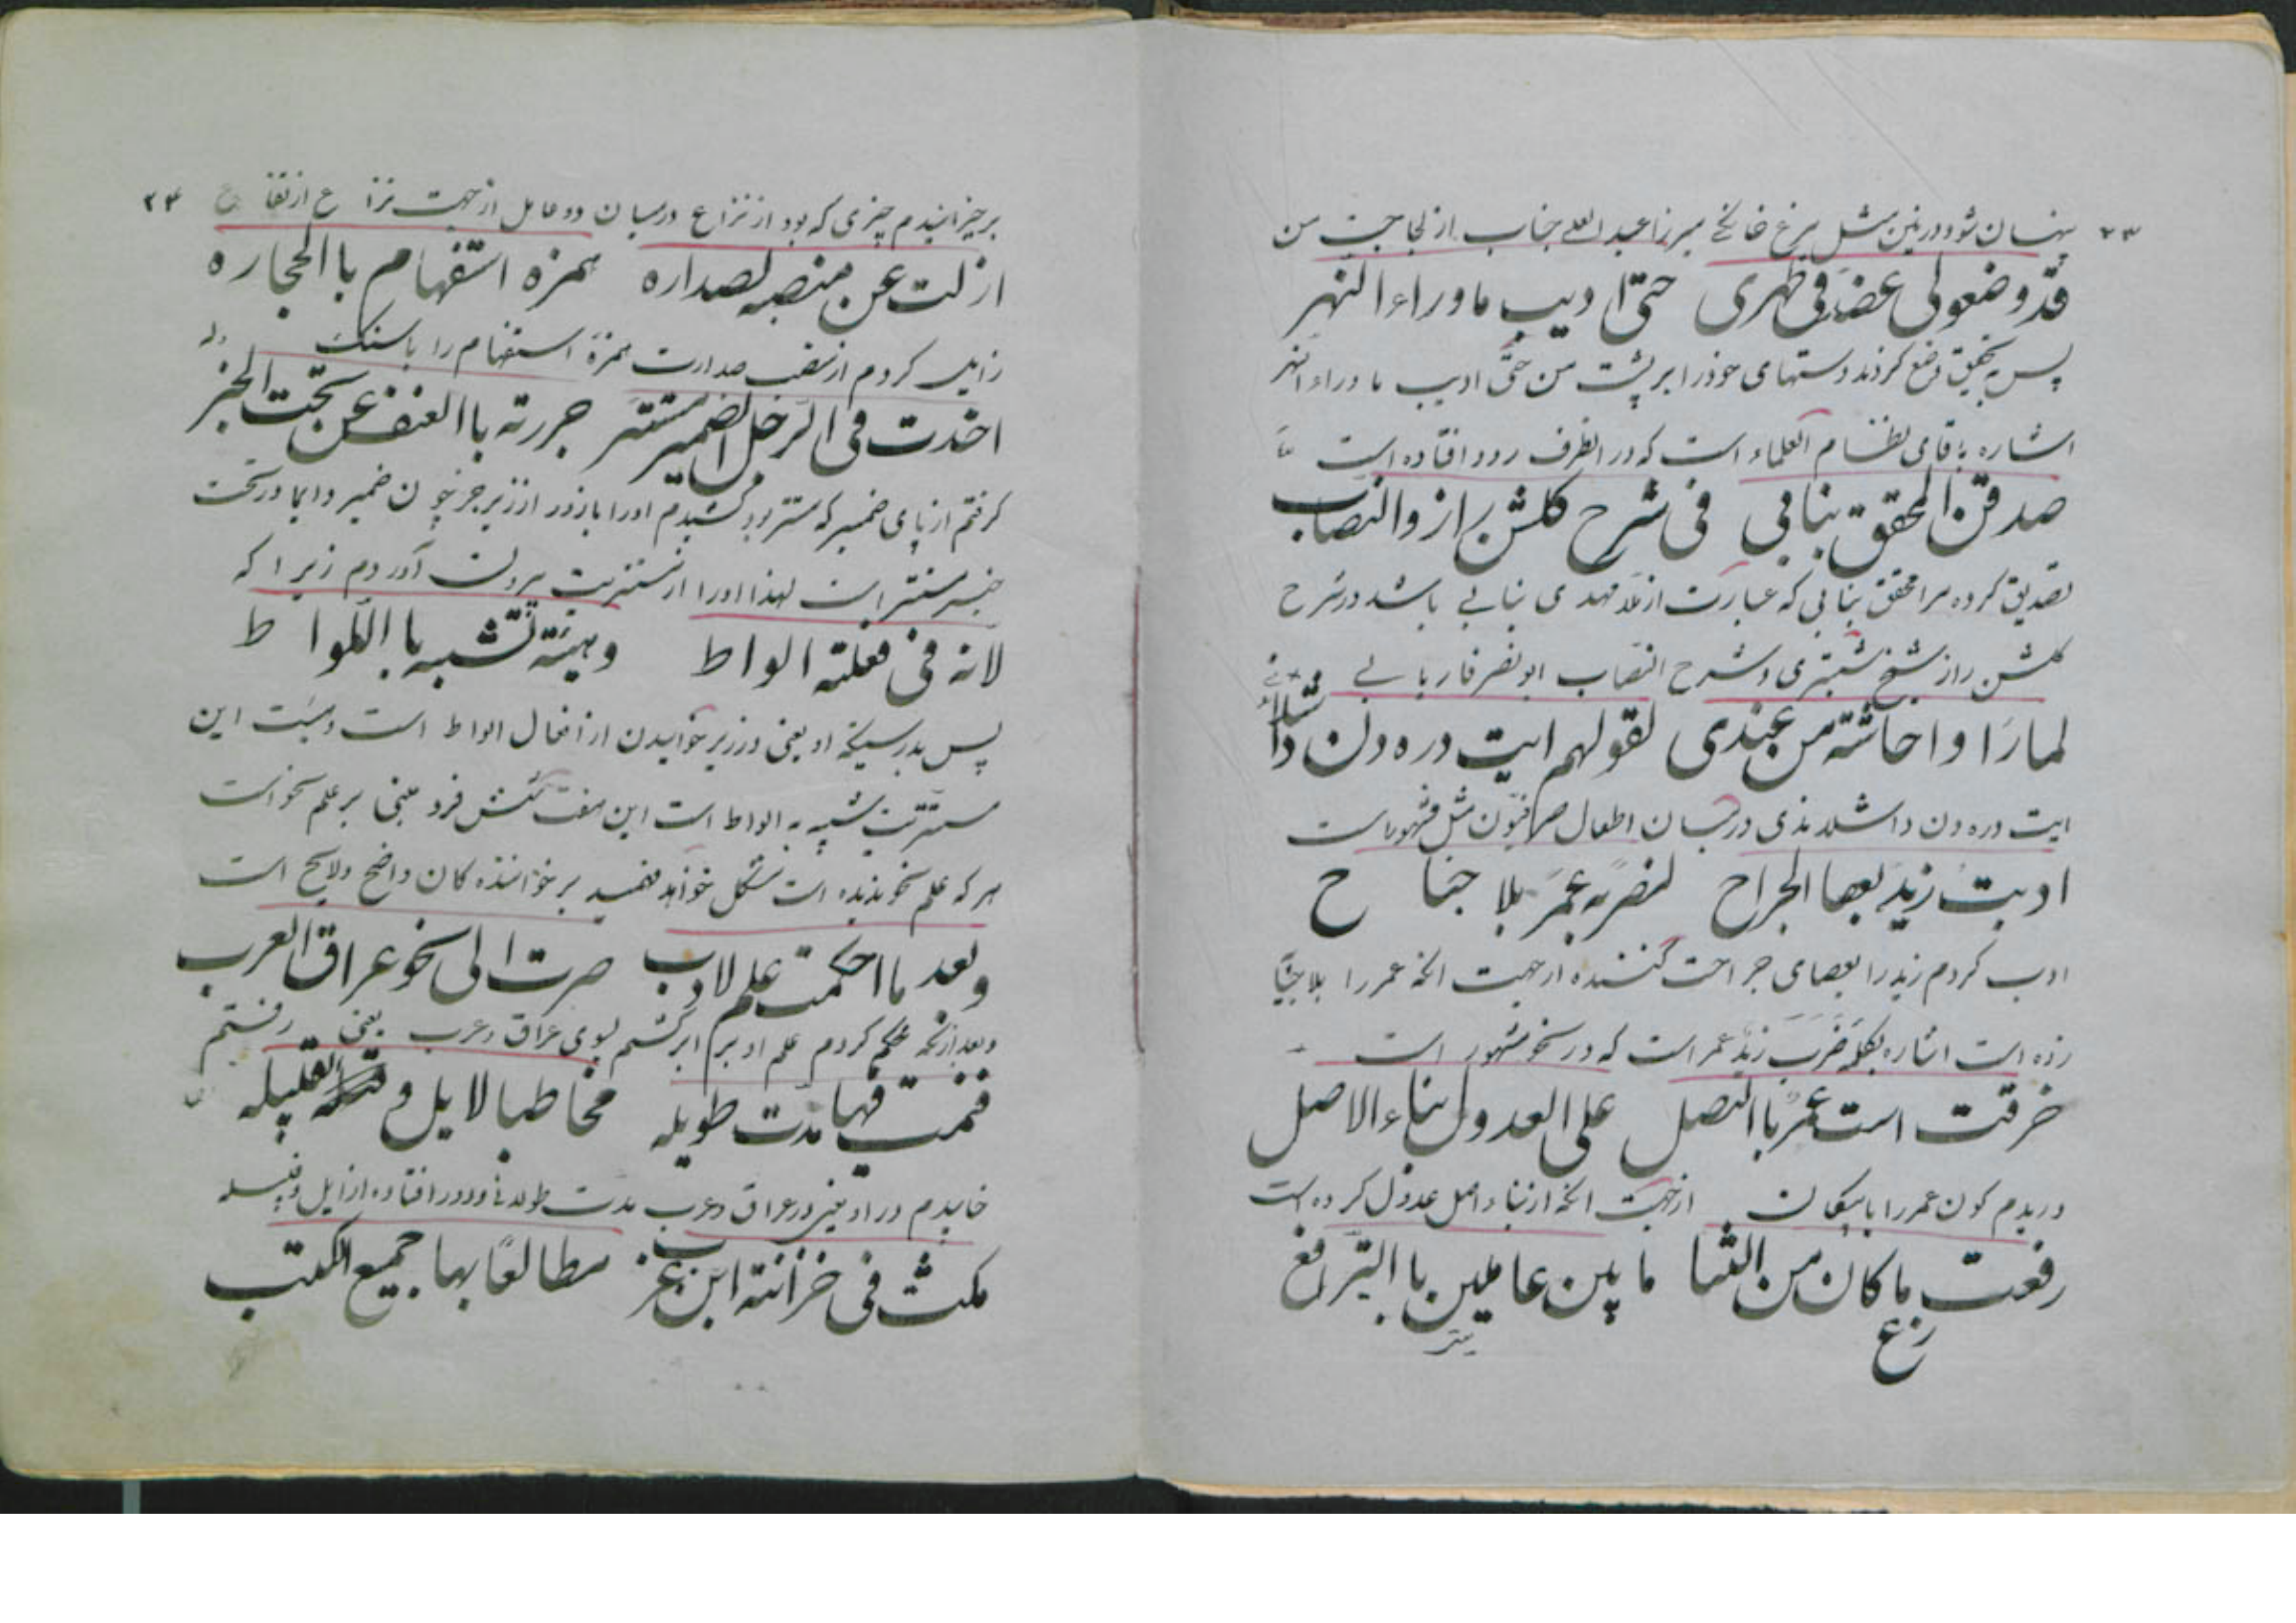 ۲۳ پنهان شود در زمین مثل مرغ خانگی میرزا عبد العلی جناب از لجاجت من
قد وضعو لی عضّ فی ظهری حتی ادیب ماوراء النهر
پس به تحقیق وضع کردند دستهای خود را بر پشت من حتّی ادیب ماوراء النهر
اشاره باقای نظام العلماء است که در انطرف رود افتاده است
صدقن المحقق بنابی فی شرح گلشن راز و النصاب
تصدیق کرده مرا محقق بنابی که عبارت از ملا مهدی بنابی باشد در شرح
گلشن راز شیخ شبستری و شرح النصاب ابو نصر فاریابی
لما راوا حاشته من عندی لقولهم ایت دره دن داشلاندی
ایت دره دن داشلاندی در میان اطفال مثل مشهور است
ادبت زید بعصا الجراح لضربه عمر بلا جناح
ادب کردم زید را بعصای جراحت کننده از جهت انکه عمر را بلا جناح
زده است اشاره بکلمه ضرب زید عمر است که در نحو مشهور است
خرقت است عمر با النصل علی العدول بناء الاصل
دریدم کون عمر را با پیکان از جهت انکه از بناء اصل عدول کرده است
رفعت ما کان من التنازع ما بین عاملین با الترافع
۲۴ برخیزانیدم چیزی که بود از نزاع در میان دو عامل از جهت نزاع
ازلت عن منصبه لصداره همزه استفهام با الحجاره
زایل کردم از منصب صدارت همزهٔ استفهام را با سنک
اخذت فی الرجل الضمیر مستتر جررته با العنف عن تحت الجر
گرفتم از پای ضمیر که مستتر بود کشیدم او را با زور از زیر جر چون ضمیر دایما در تحت
مستتر است لهذا او را از مستتریت بیرون آوردم زیرا که
لانه فی فعلته الواط وهیئته تشبه با اللواط
پس بدرستیکه او یعنی در زیر خوابیدن از افعال الواط است و هیئت این
مستتریت شبیه به الواط است این هفت هشت فرد مبنی بر علم نحو است
هر که علم نحو ندیده است مشکل خواهد فهمید بر خواننده کان واضح ولایح است
وبعد ما احکمت علم لادب صرت الی نحو عراق العرب
و بعد از انکه محکم کردم علم ادب را برگشتم بسوی عراق عرب یعنی رفتم
فنمت فیها مدت طویله مخاطبا لایل و القلیله
خابیدم در او یعنی در عراق عرب مدت طولانی و دور افتاده از ایل و قبیله
مکث فی خزانته ابن عجز مطالعًا بها جمیع الکتب